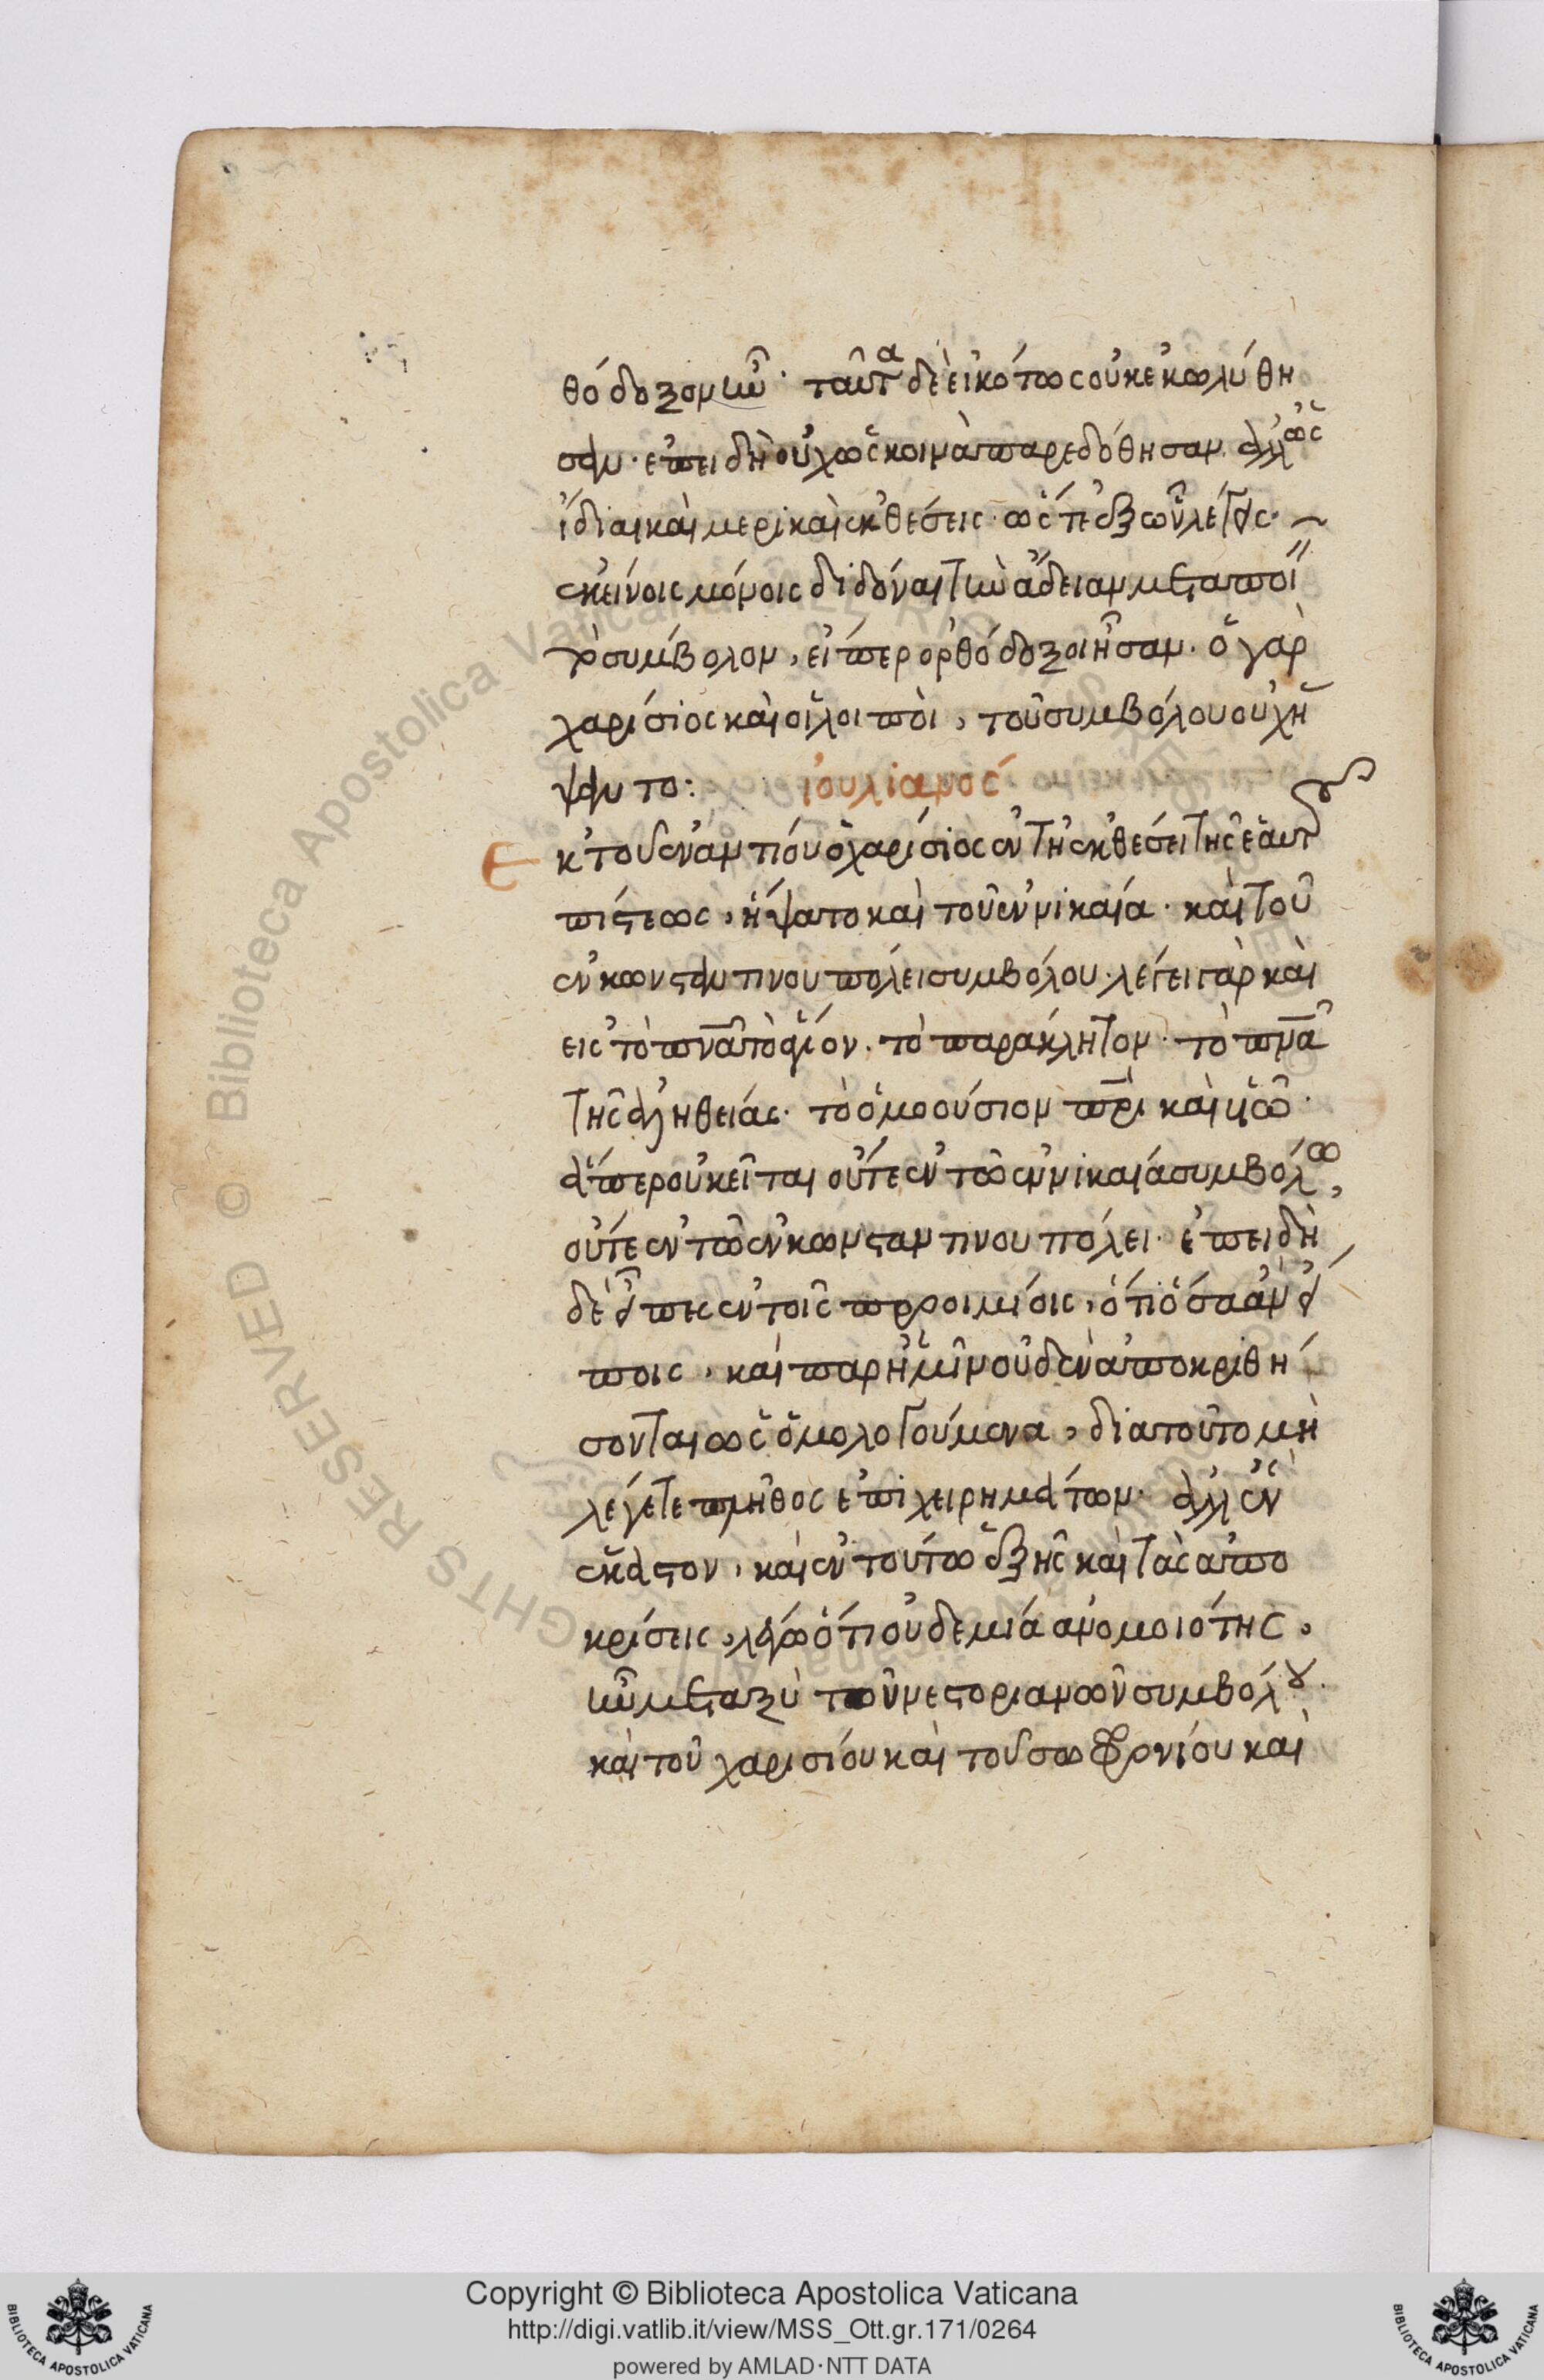 θόδοξον ἦν· ταῦτα δὲ εἰκότως οὐκ ἐκωλύθη
σαν· ἐπειδὴ οὐχ ὡς κοιναὶ παρεδόθησαν. ἀλλ ὡς
ἰδίαι καὶ μερικαὶ ἐκθέσεις·
ἐκείνοις μόνοις διδόναι τὴν ἄδειαν μεταποι
τὸ σύμβολον, εἴπερ ὀρθόδοξοι ἦσαν. ὁ γὰρ
χαρίσιος καὶ οἱ λοιποὶ, τοῦ συμβόλου οὐχ ἥ
ψαντο:
ἰουλιανός
Ε
κ τοῦ ἐναντίου ὁ χαρίσιος ἐν τῇ ἐκθέσει τῆς ἑαυτοῦ
πίστεως, ἥψατο καὶ τοῦ ἐν νικαία· καὶ τοῦ
ἐν κωνσταντινουπόλει συμβόλου. λέγει γὰρ καὶ
εἰς τὸ πνα τὸ ἅγιον. τὸ παράκλητον· τὸ πνα
τῆς ἀληθείας· τὸ ὁμοούσιον πρι καὶ υἱῶ·
ἅπερ οὐ κεῖται οὔτε ἐν τῶ ἐν νικαία συμβόλω,
οὔτε ἐν τῶ ἐν κωνσταντινουπόλει· ἐπειδὴ
δὲ εἶπες ἐν τοῖς προοιμίοις, ὅτι ὅσα ἂν εἴ
ποις, καὶ παρ ἡμῖν οὐδὲν ἀποκριθή
σονται ὡς ὁμολογούμενα, διατοῦτο μὴ
λέγετε πλῆθος ἐπιχειρημάτων· ἀλλ ἓν
ἕκαστον, καὶ ἐν τούτω ἑξῆς καὶ τὰς ἀπο
κρίσεις, ὅτι οὐδεμιά ἀνομοιότης,
ἦν μεταξὺ τῶν νεστοριανῶν συμβόλου·
καὶ τοῦ χαρισίου καὶ τοῦ σωφρονίου καὶ
Copyright © Biblioteca Apostolica Vaticana
http://digi.vatlib.it/view/MSS_Ott.gr.171/0264
powered by AMLAD·NTT DATA